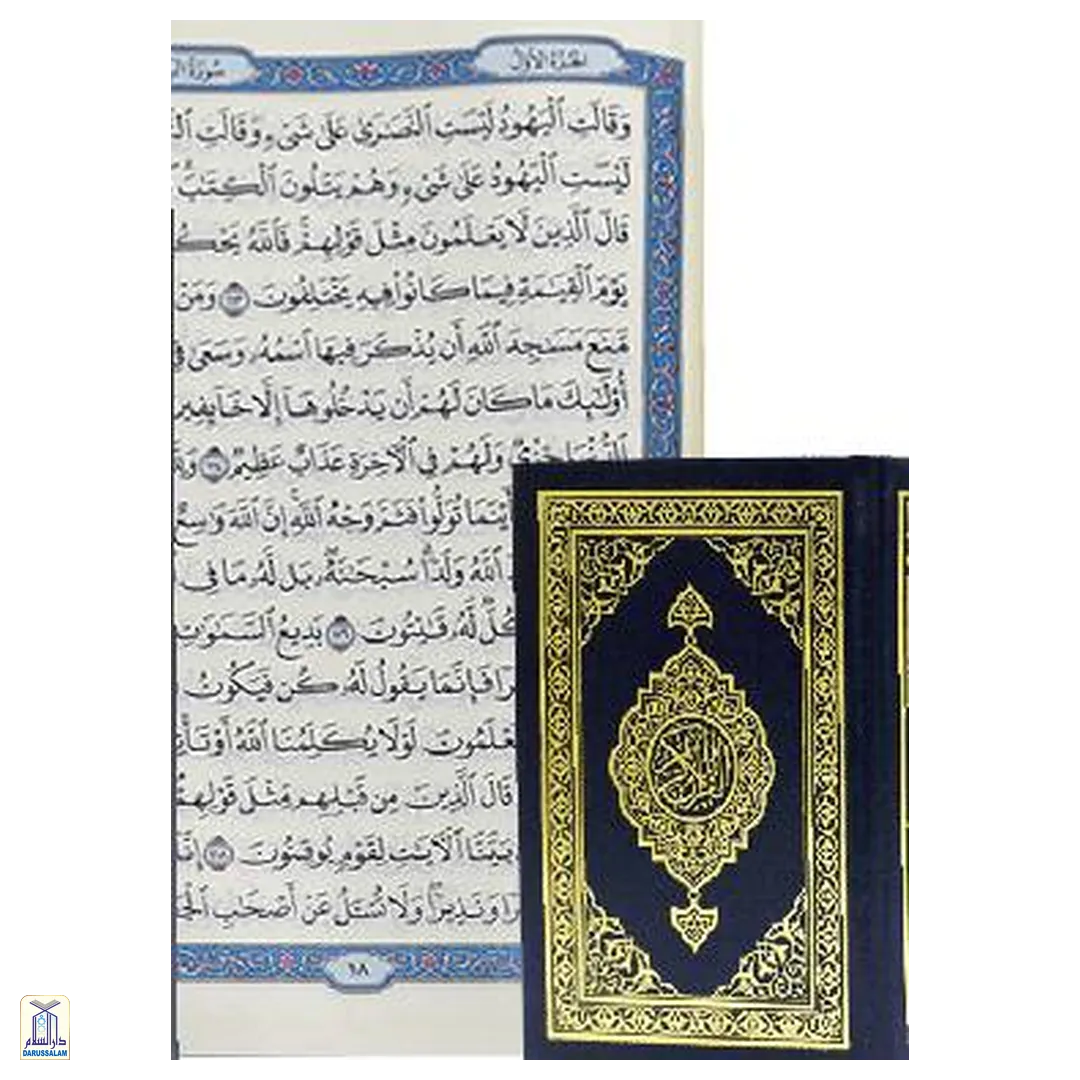 الجزء الأول
سورة
وَقَالَتِ ٱلْيَهُودُ لَيْسَتِ ٱلنَّصَـٰرَىٰ عَلَىٰ شَىْءٍ وَقَالَتِ
لَيْسَتِ ٱلْيَهُودُ عَلَىٰ شَىْءٍ وَهُمْ يَتْلُونَ ٱلْكِتَـٰبَ
قَالَ ٱلَّذِينَ لَا يَعْلَمُونَ مِثْلَ قَوْلِهِمْ فَٱللَّهُ يَحْكُ
يَوْمَ ٱلْقِيَـٰمَةِ فِيمَا كَانُوا۟ فِيهِ يَخْتَلِفُونَ ١١٣ وَمَنْ
مَّنَعَ مَسَـٰجِدَ ٱللَّهِ أَن يُذْكَرَ فِيهَا ٱسْمُهُۥ وَسَعَىٰ فِى
أُو۟لَـٰٓئِكَ مَا كَانَ لَهُمْ أَن يَدْخُلُوهَآ إِلَّا خَآئِفِين
ٱلدُّنْيَا خِزْىٌ وَلَهُمْ فِى ٱلْـَٔاخِرَةِ عَذَابٌ عَظِيمٌ ١١٤
أَيْنَمَا تُوَلُّوا۟ فَثَمَّ وَجْهُ ٱللَّهِ إِنَّ ٱللَّهَ وَٰسِعٌ
ٱللَّهُ وَلَدًا سُبْحَـٰنَهُۥ بَل لَّهُۥ مَا فِى
كُلٌّ لَّهُۥ قَـٰنِتُونَ ١١٦ بَدِيعُ ٱلسَّمَـٰوَٰتِ
رًا فَإِنَّمَا يَقُولُ لَهُۥ كُن فَيَكُونُ
عْلَمُونَ لَوْلَا يُكَلِّمُنَا ٱللَّهُ أَوْ تَأْتِ
قَالَ ٱلَّذِينَ مِن قَبْلِهِم مِّثْلَ قَوْلِهِمْ
بَيَّنَّا ٱلْـَٔايَـٰتِ لِقَوْمٍ يُوقِنُونَ ١١٨ إِنَّا
رًا وَنَذِيرًا وَلَا تُسْـَٔلُ عَنْ أَصْحَـٰبِ ٱلْجَ
١٨
القرآن الكريم
دار السلام
DARUSSALAM